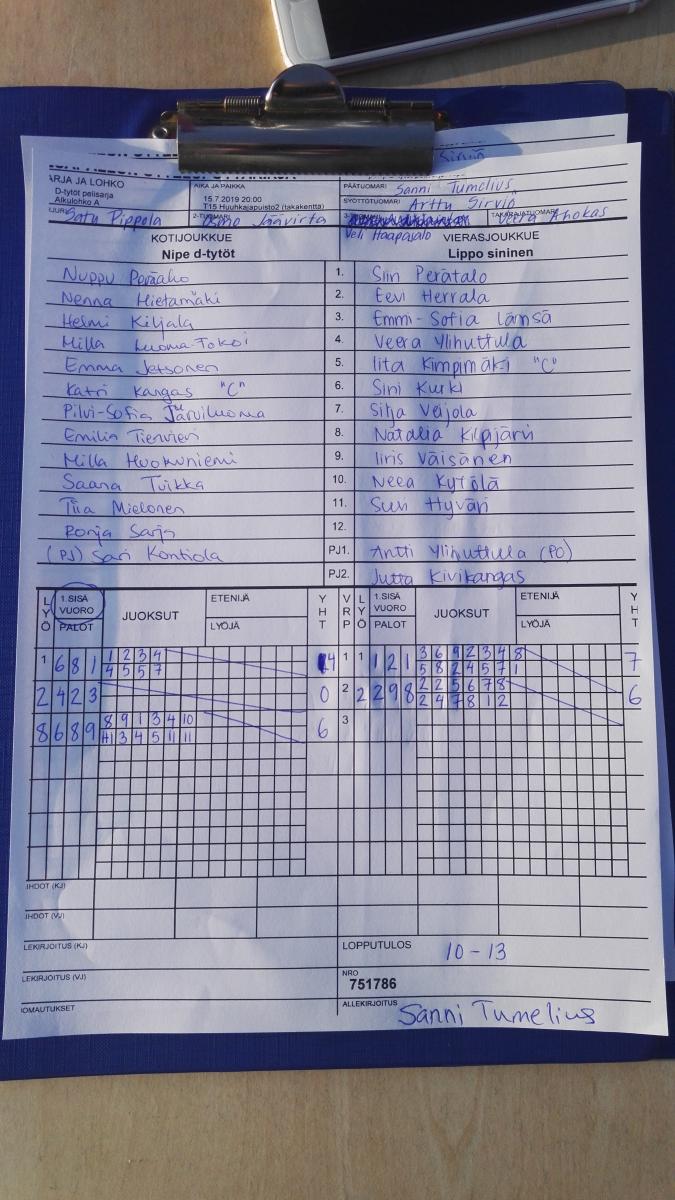 ARJA JA LOHKO
D-tytöt pelisarja
Alkulohko A
AIKA JA PAIKKA
15.7.2019 20:00
T15 Huuhkajapuisto2 (takakenttä)
PÄÄTUOMARI Sanni Tumelius
SYÖTTÖTUOMARI Arttu Sirviö
Satu Pippola
2-TUOMARI Osmo Jäävirta
TAKARAJATUOMARI Veera Ahokas
Veli Haapasalo
KOTIJOUKKUE VIERASJOUKKUE
Nipe d-tytöt Lippo sininen
Nuppu Peräaho 1. Siin Perätalo
Nenna Hietamäki 2. Eevi Herrala
Helmi Kiljala 3. Emmi-Sofia Lämsä
Milla Luoma-Tokoi 4. Veera Ylihuttula
Emma Jetsonen 5. Iita Kimpimäki "C"
Katri Kangas "C" 6. Sini Kurki
Pilvi-Sofia Järviluoma 7. Silja Veijola
Emilia 8. Natalia Kilpijärvi
Milla Huokuniemi 9. Iiris Väisänen
Saana Tuikka 10. Neea Kytölä
Tiia Mielonen 11. Suvi Hyväri
Ronja Sarja 12.
(PJ) Sari Kontiola PJ1. Antti Ylihuttula (PO)
PJ2. Jutta Kivikangas
LYÖ 1.SISÄ VUORO PALOT JUOKSUT ETENIJÄ LYÖJÄ YHT VRP LYÖ 1.SISÄ VUORO PALOT JUOKSUT ETENIJÄ LYÖJÄ YHT
1 6 8 1 1 2 3 4 4 1 1 1 2 1 3 6 9 2 3 4 8 7
4 5 5 7 5 8 2 4 5 7 1
2 4 2 3 0 2 2 2 9 8 2 2 5 6 7 8 6
2 4 7 8 1 2
8 6 8 9 8 9 1 3 4 10 6 3
1 3 4 5 11 11
IHDOT (KJ)
IHDOT (VJ)
LEKIRJOITUS (KJ) LOPPUTULOS 10-13
LEKIRJOITUS (VJ) NRO
751786
IOMAUTUKSET ALLEKIRJOITUS Sanni Tumelius